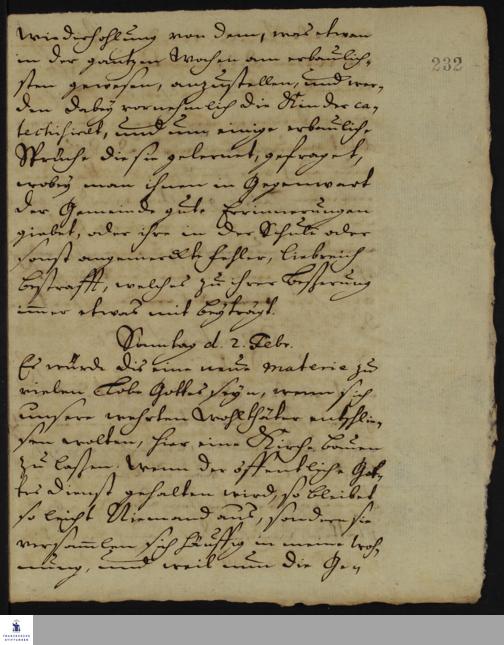 Wiederhohlung von dem, was etwan
in der gantzen Wochen am erbaulich-
sten gewesen, anzustellen, und wer-
den dabey vornehmlich die Kinder ca-
techisiret, und um einige erbauliche
Sprüche die sie gelernet, gefraget,
wobey man ihnen in Gegenwart
der Gemeinde gute Erinnerungen
giebet, oder ihre in der Schule oder
sonst angemerckte Fehler, liebreich
bestrafft, welches zu ihrer Besserung
immer etwas mit beyträgt.
Sonntag d. 2. Febr.
Es würde dis eine neue materie zu
vielen Lobe Gottes seyn, wenn sich
unsere wehrten Wohlthäter entschlie-
sen wolten, hier eine Kirche bauen
zu laßen. Wenn der öffentliche Got-
tes dienst gehalten wird, so bleibet
so leicht Niemand aus, sondern sie
versammlen sich häuffig in meine Woh-
nung, und weil nun die Ge-
232
FRANCKESCHE
STIFTUNGEN